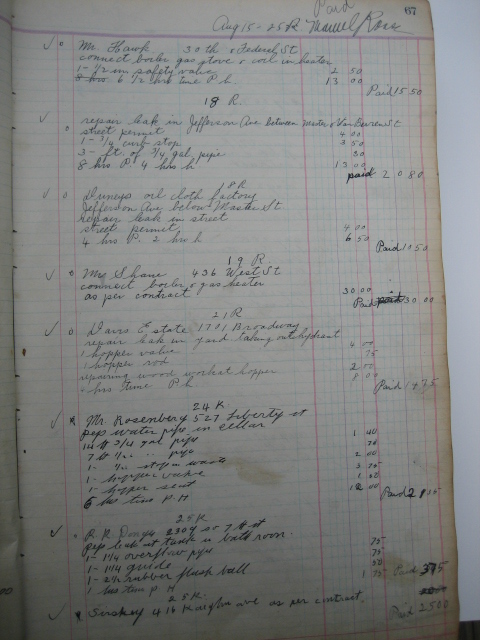 Paid 157
Aug 15-25 R Manuel Rose
Mr. Hawk 30th & Federal St
connect boiler gas stove & coil in heater
1- 1/2 in safety valve 2 50
6 1/2 hrs time P h 13 00
Paid 15 50
18 R.
repair leak in Jefferson Ave between Master & Van Buren St
street permit 4 00
1- 3/4 curb stop 3 50
3- ft. of 3/4 gal. pipe 30
8 hrs P. 4 hrs h 13 00
paid 20 80
18 R
oil cloth factory
Jefferson Ave below Master St
repair leak in street
street permit 4 00
4 hrs P. 2 hrs h 6 50
Paid 10 50
19 R.
Mr Shane 436 West St
connect boiler & gas heater
as per contract 30 00
Paid 30 00
21 R
Davis Estate 1701 Broadway
repair leak in yard taking out hydrant
1 hopper valve 4 00
1 hopper rod 75
repairing wood work at hopper 2 00
hrs time P h 8 00
Paid 14 75
24 R.
Mr. Rosenberg 527 Liberty st
pipe water pipe in cellar
14 ft 3/4 gal pipe 1 40
7 ft 1/2 " pipe
1- 1/2 stop & waste 2 00
1- hopper valve
1- hopper seat
6 hrs time P. H 12 00
Paid 21
25 R
230 so 7th st
leak at tank in bath room.
1- 1/4 overflow pipe 75
1- 1/4 guide
1- 2 1/2 rubber flush ball
1 hrs time P H 1 75 Paid 3 75
25 R.
416 Kaighn ave as per contract.
Paid 25 00